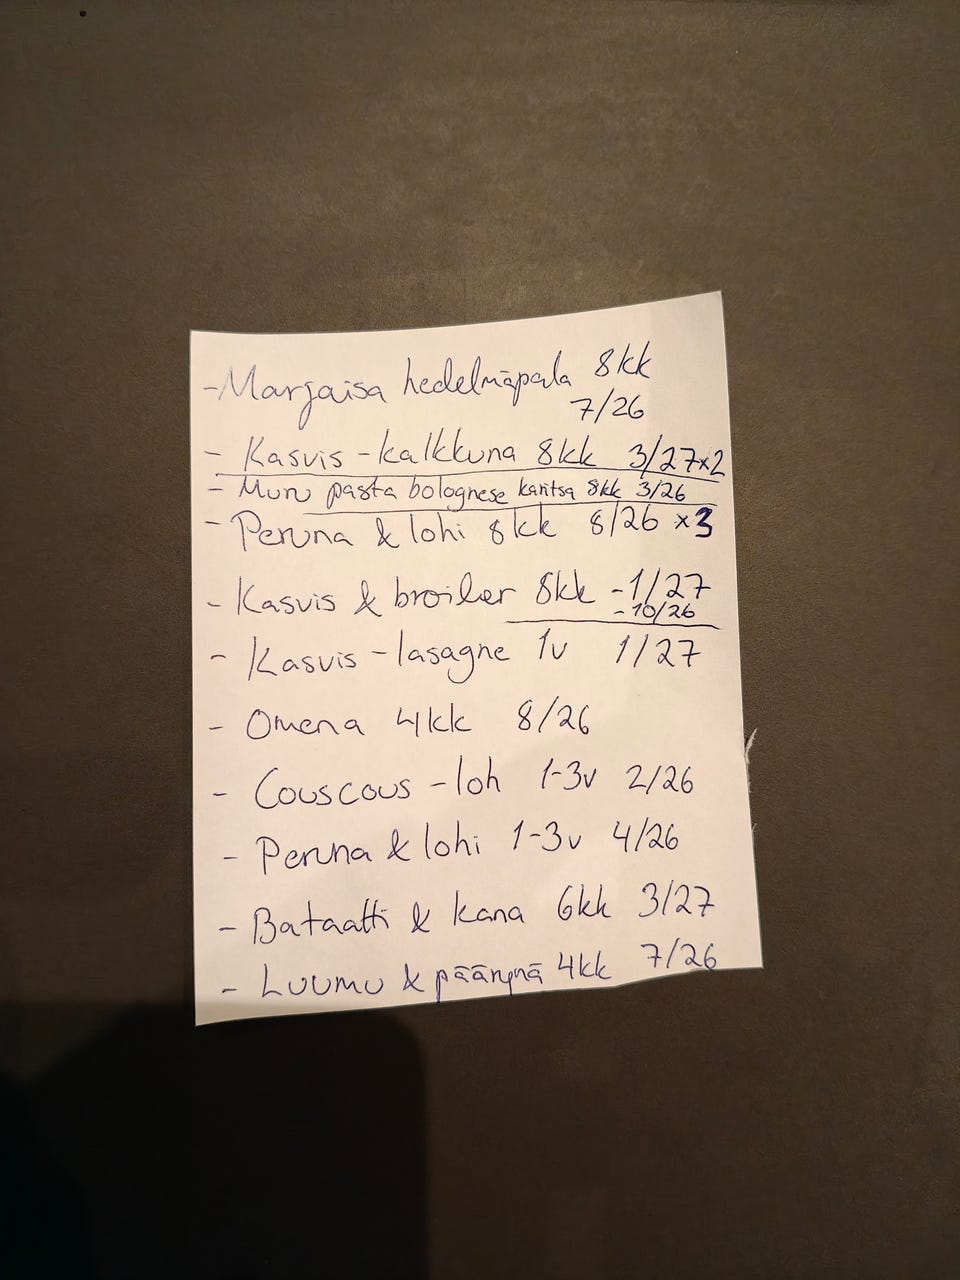 - Marjaisa hedelmäpala 8kk
7/26
- Kasvis - kalkkuna 8kk 3/27x2
- Mun pasta bolognese karitsa 8kk 3/26
- Peruna & lohi 8kk 8/26 x3
- Kasvis & broiler 8kk - 1/27
- 10/26
- Kasvis - lasagne 1v 1/27
- Omena 4kk 8/26
- Couscous - loh 1-3v 2/26
- Peruna & lohi 1-3v 4/26
- Bataatti & kana 6kk 3/27
- Luumu & päärynä 4kk 7/26